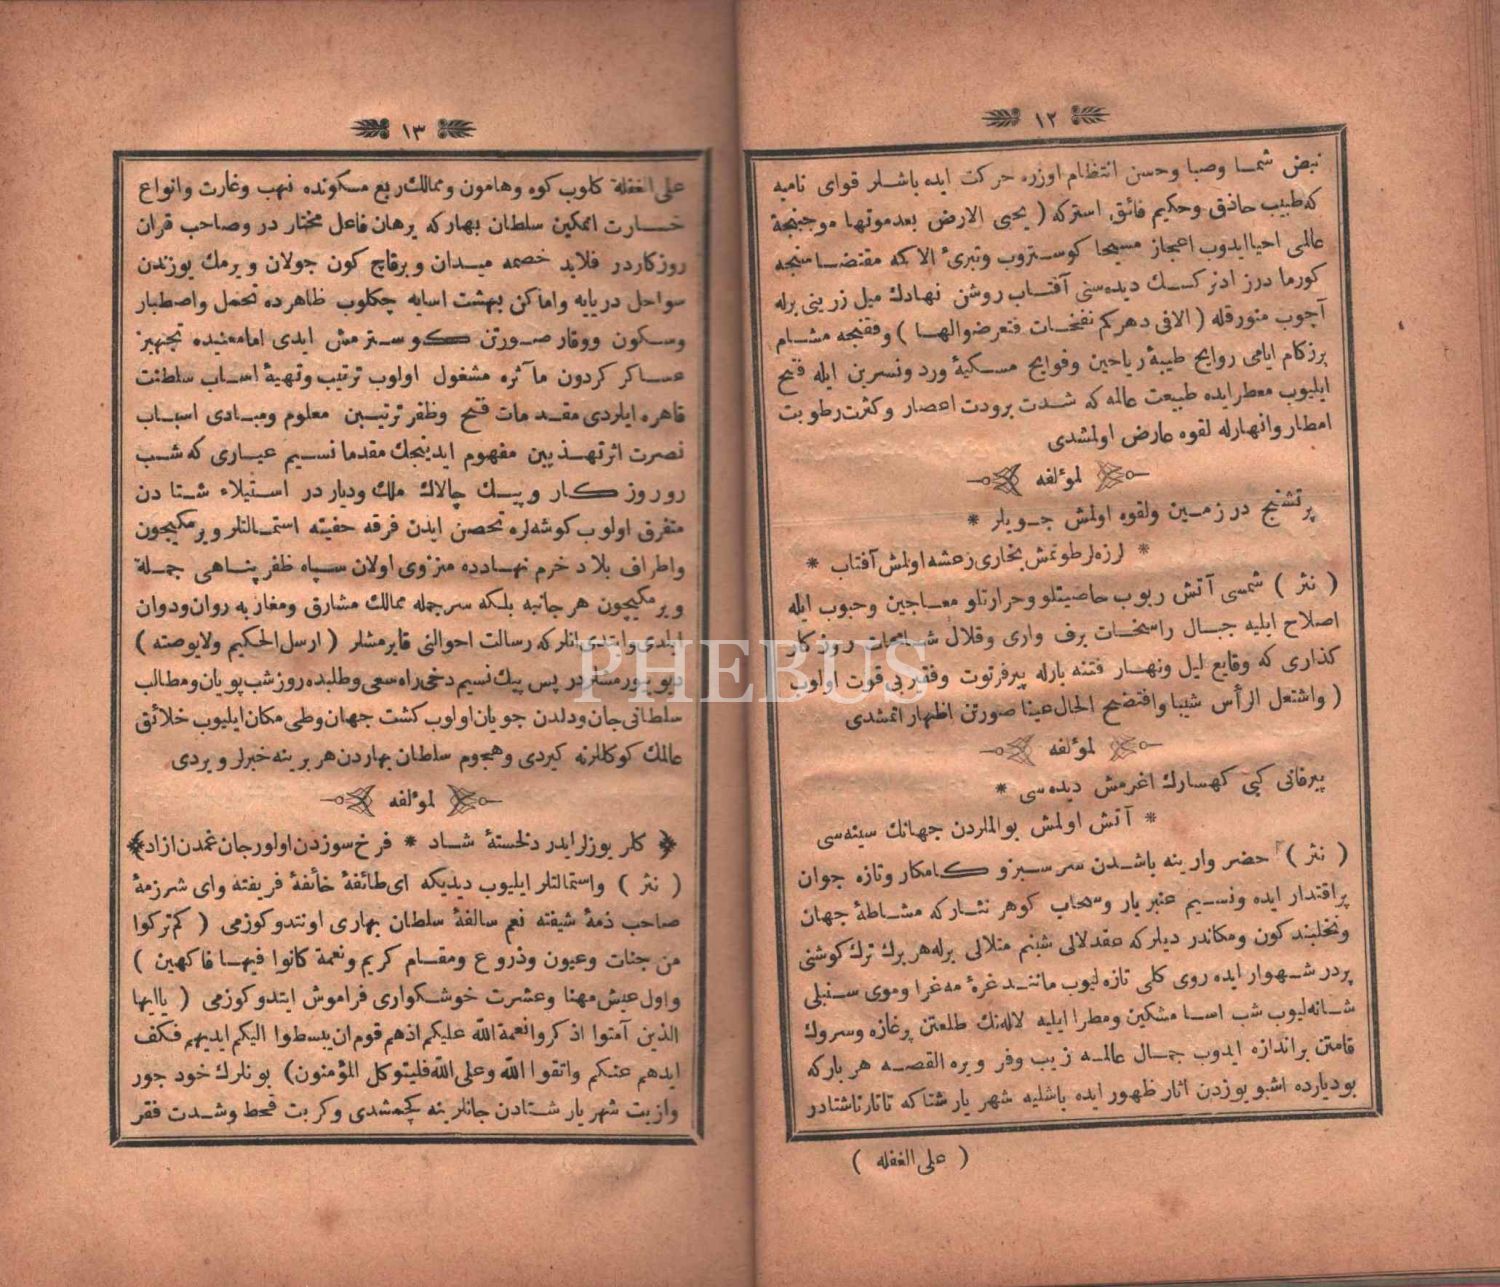 ١٢
نبض شمـا وصبا وحسن انتظام اوزره حركت ايده باشلر قواى ناميه
كه طبيب حاذق وحكيم فائق استركه ( يحيى الارض بعد موتها موجبنجة
عالمى احيا ايدوب اعجاز مسيحا كوستروب وتبرئ الاكمه مقتضاسنجه
كورمادرزاد نركسك ديده سنى آفتاب روشن نهادك ميل زرينى برله
آچوب منور قله ( الا فى دهركم نفخات فتعرضوالها ) وفقنجه مشام
پرزكام ايامى روايح طيبۀ رياحين وفوايح مسكيۀ ورد ونسرين ايله فتح
ايليوب معطر ايده طبيعت عالمه كه شدت برودت اعصار وكثرت رطوبت
امطار وانهارله لقوه عارض اولمشدى
لمؤلفه
پرتشنج در زمين ولقوه اولمش جويلر *
* لرزه لر طوتمش بخارى رعشه اولمش آفتاب *
( نثر ) شمسى آتش ريوب حاصيتلو وحرارتلو معاجين وحبوب ايله
اصلاح ايليه جبال راسخات برف وارى وقلال شامخات روزكار
كذارى كه وقايع ليل ونهار فتنه بارله پير فرتوت وفقير بى قوت اولوب
( واشتعل الرأس شيبا وافتضح الحال عينا صورتن اظهار اتمشدى
لمؤلفه
پير فانى كبى كهسارك اغرمش ديده سى *
* آتش اولمش بوالملردن جهانك سينه سى
( نثر ) حضر وارينه باشدن سر سبز و كامكار وتازه جوان
پر اقتدار ايده ونسيم عنبربار وسحاب كوهر نثاركه مشاطۀ جهان
ونخلبند كون ومكاندر ديلركه عقد لالى شبنم متلالى برله هر برك ترك كوشنى
پر در شهوار ايده روى كلى تازه ليوب مانند غرۀ مه غرا وموى سنبلى
شانه ليوب شب اسا مشكين ومطرا ايليه لاله نك طلعتن پرغازه وسروك
قامتن براندازه ايدوب جمال عالمه زيب وفر ويره القصه هر باركه
بوديارده اشبو يوزدن اثار ظهور ايده باشليه شهريار شتاكه تاتار ناشتادر
( على الغفله )
١٣
على الغفلة كلوب كوه وهامون وممالك ربع مسكونده نهب وغارت وانواع
خسارت اتمكين سلطان بهاركه برهان فاعل مختار در وصاحب قران
روزكاردر فلابد خصمه ميدان ويرقاچ كون جولان ويرمك يوزندن
سواحل دريايه واماكن بهشت اسايه چكلوب ظاهرده تحمل واصطبار
وسكون ووقار صورتن كوسترمش ايدى امامعنيده تجهيز
عساكر كردون مآثره مشغول اولوب ترتيب وتهيۀ اسباب سلطنت
قاهره ايلردى مقدمات فتح وظفر ترتيبين معلوم ومبادى اسباب
نصرت اثر تهذيبين مفهوم ايدينجك مقدما نسيم عيارى كه شب
رو روزكار وپيك چالاك ملك وديار در استيلاء شتادن
متفرق اولوب كوشه لره تحصن ايدن فرقه حفيته استمالتلر ويرمكيچون
واطراف بلاد خرم نهادده منزوى اولان سپاه ظفر پناهى جملة
ويرمكيچون هر جانبه بلكه سر جمله ممالك مشارق ومغاربه روان ودوان
ايلدى وابتدى انلركه رسالت احوالنى قايرمشلر ( ارسل الحكيم ولا يوصته )
ديو بيورمشلردر پس پيك نسيم دخى راه سعى وطلبده روز شب پويان ومطالب
سلطانى جان ودلدن جويان اولوب كشت جهان وطى مكان ايليوب خلائق
عالمك كوكللرنه كيردى وهجوم سلطان بهاردن هر برينه خبرلر ويردى
لمؤلفه
كلر يوزلر ايدر دلخستۀ شاد * فرخ سوزدن اولور جان غمدن ازاد
( نثر ) واستمالتلر ايليوب ديديكه اى طائفۀ خائفۀ فريفته واى شرزمۀ
صاحب ذمۀ شيفته نعم سالفۀ سلطان بهارى اونتدوكوزمى ( كم تركوا
من جنات وعيون وذروع ومقام كريم ونعمة كانوا فيها فاكهين )
واول عيش مهنا وعشرت خوشكوارى فراموش ايتدوكوزمى ( ياايها
الذين آمنوا اذكروا نعمة الله عليكم اذهم قوم ان يبسطوا اليكم ايديهم فكف
ايدهم عنكم واتقوا الله وعلى الله فليتوكل المؤمنون) بونلرك خود جور
وازيت شهريار شتادن جانلرينه كچمشدى وكربت قحط وشدت فقر
PHEBUS